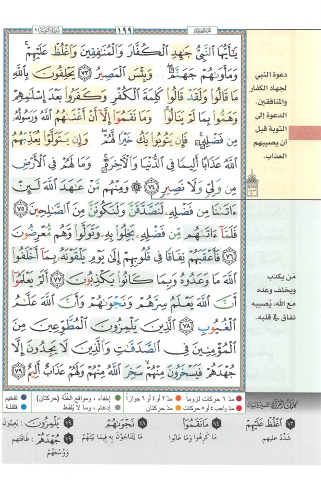 ١٩٩
يَٰٓأَيُّهَا ٱلنَّبِيُّ جَٰهِدِ ٱلْكُفَّارَ وَٱلْمُنَٰفِقِينَ وَٱغْلُظْ عَلَيْهِمْ ۚ
وَمَأْوَىٰهُمْ جَهَنَّمُ ۖ وَبِئْسَ ٱلْمَصِيرُ ٧٣ يَحْلِفُونَ بِٱللَّهِ
مَا قَالُوا۟ وَلَقَدْ قَالُوا۟ كَلِمَةَ ٱلْكُفْرِ وَكَفَرُوا۟ بَعْدَ إِسْلَٰمِهِمْ
وَهَمُّوا۟ بِمَا لَمْ يَنَالُوا۟ ۚ وَمَا نَقَمُوٓا۟ إِلَّآ أَنْ أَغْنَىٰهُمُ ٱللَّهُ وَرَسُولُهُۥ
مِن فَضْلِهِۦ ۚ فَإِن يَتُوبُوا۟ يَكُ خَيْرًا لَّهُمْ ۖ وَإِن يَتَوَلَّوْا۟ يُعَذِّبْهُمُ
ٱللَّهُ عَذَابًا أَلِيمًا فِى ٱلدُّنْيَا وَٱلْءَاخِرَةِ ۚ وَمَا لَهُمْ فِى ٱلْأَرْضِ
مِن وَلِىٍّ وَلَا نَصِيرٍ ٧٤ وَمِنْهُم مَّنْ عَٰهَدَ ٱللَّهَ لَئِنْ
ءَاتَىٰنَا مِن فَضْلِهِۦ لَنَصَّدَّقَنَّ وَلَنَكُونَنَّ مِنَ ٱلصَّٰلِحِينَ ٧٥
فَلَمَّآ ءَاتَىٰهُم مِّن فَضْلِهِۦ بَخِلُوا۟ بِهِۦ وَتَوَلَّوا۟ وَّهُم مُّعْرِضُونَ
٧٦ فَأَعْقَبَهُمْ نِفَاقًا فِى قُلُوبِهِمْ إِلَىٰ يَوْمِ يَلْقَوْنَهُۥ بِمَآ أَخْلَفُوا۟
ٱللَّهَ مَا وَعَدُوهُ وَبِمَا كَانُوا۟ يَكْذِبُونَ ٧٧ أَلَمْ يَعْلَمُوٓا۟
أَنَّ ٱللَّهَ يَعْلَمُ سِرَّهُمْ وَنَجْوَىٰهُمْ وَأَنَّ ٱللَّهَ عَلَّٰمُ
ٱلْغُيُوبِ ٧٨ ٱلَّذِينَ يَلْمِزُونَ ٱلْمُطَّوِّعِينَ مِنَ
ٱلْمُؤْمِنِينَ فِى ٱلصَّدَقَٰتِ وَٱلَّذِينَ لَا يَجِدُونَ إِلَّا
جُهْدَهُمْ فَيَسْخَرُونَ مِنْهُمْ ۙ سَخِرَ ٱللَّهُ مِنْهُمْ وَلَهُمْ عَذَابٌ أَلِيمٌ ٧٩
دعوة النبي
لجهاد الكفار
والمنافقين.
الدعوة إلى
التوبة قبل
أن يصيبهم
العذاب.
من يكذب
ويخلف وعده
مع الله، يُصيبه
نفاق في قلبه.
مدّ ٦ حركات لزوماً مدّ ٢ أو ٤ أو ٦ جوازاً إخفاء، ومواقع الغُنَّة (حركتان) تفخيم
مدّ واجب ٤ أو ٥ حركات مدّ حركتان إدغام، وما لا يُلفَظ قلقلة
٧٣ ٱغْلُظْ عَلَيْهِمْ
شدِّد عليهم
٧٤ مَا نَقَمُوا
ما كرهوا وما عابوا
٧٨ نَجْوَىٰهُمْ
ما يتناجَوْن به فيما بينهم
٧٩ يَلْمِزُونَ: يعيبون
٧٩ جُهْدَهُمْ: طاقتهم
ووُسْعَهُمْ